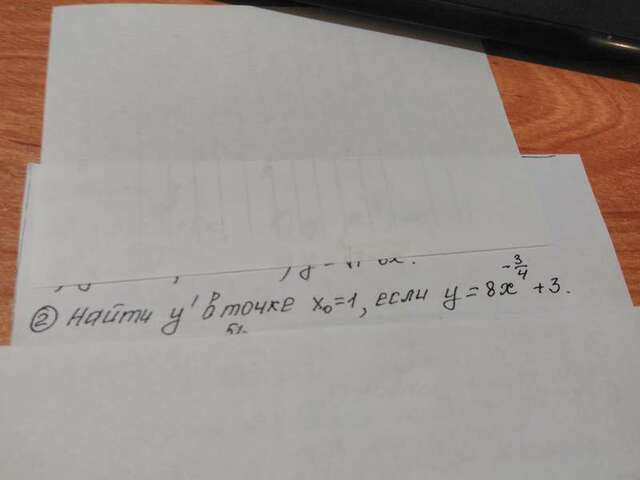 ② Найти y' в точке x₀=1, если y = 8x^{-3/4} + 3.